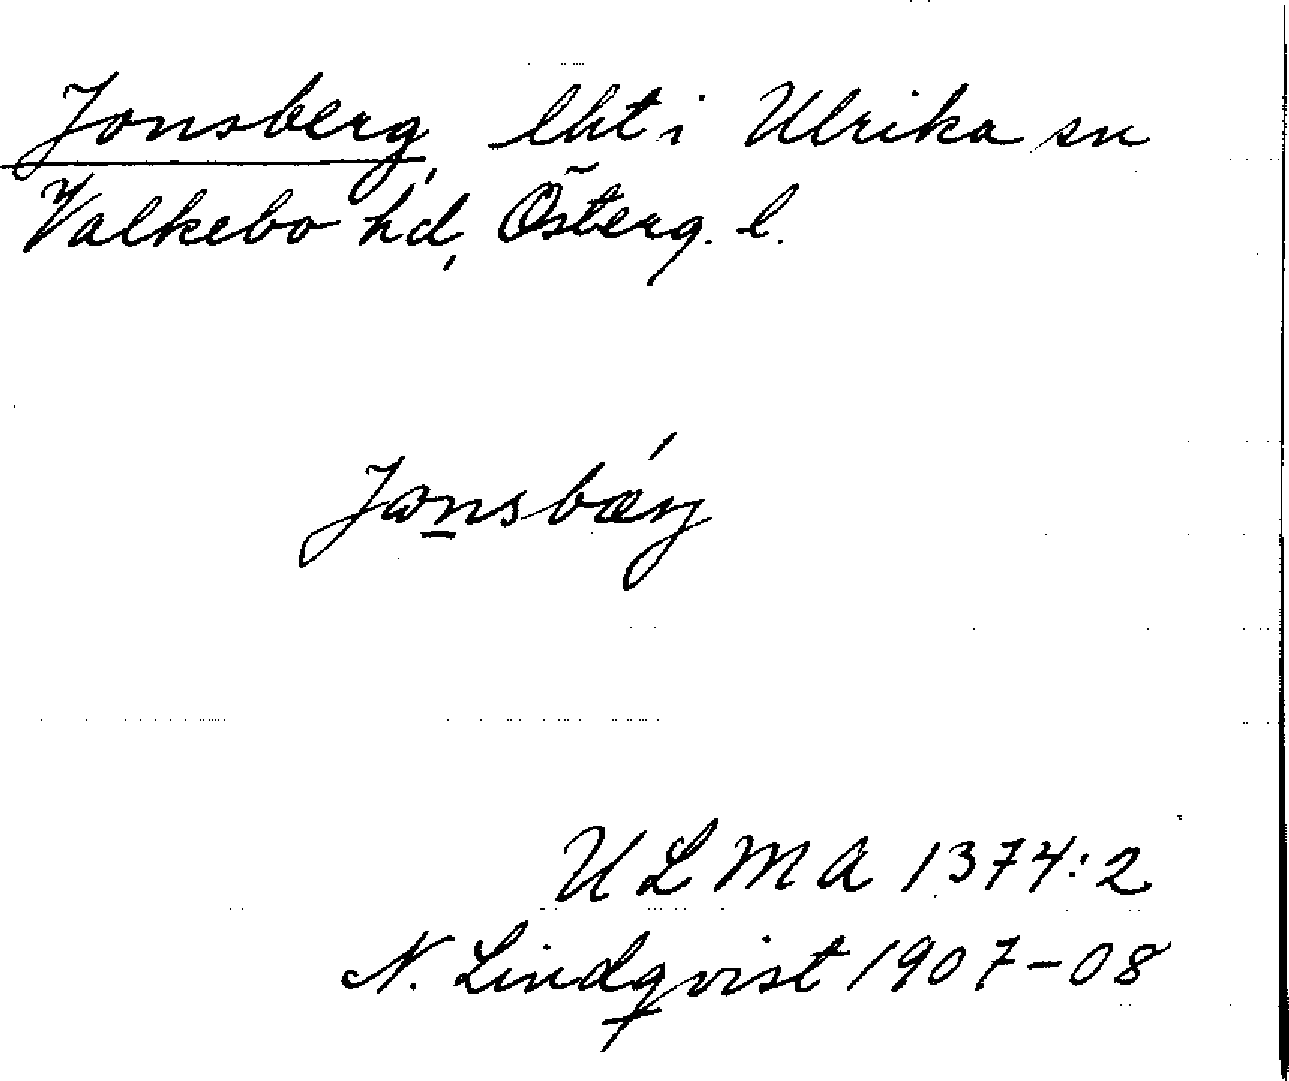 Jonsberg, lht i Ulrika sn
Valkebo hd, Österg. l.
Jonsbærj
ULMA 1374:2
N. Lindqvist 1907-08